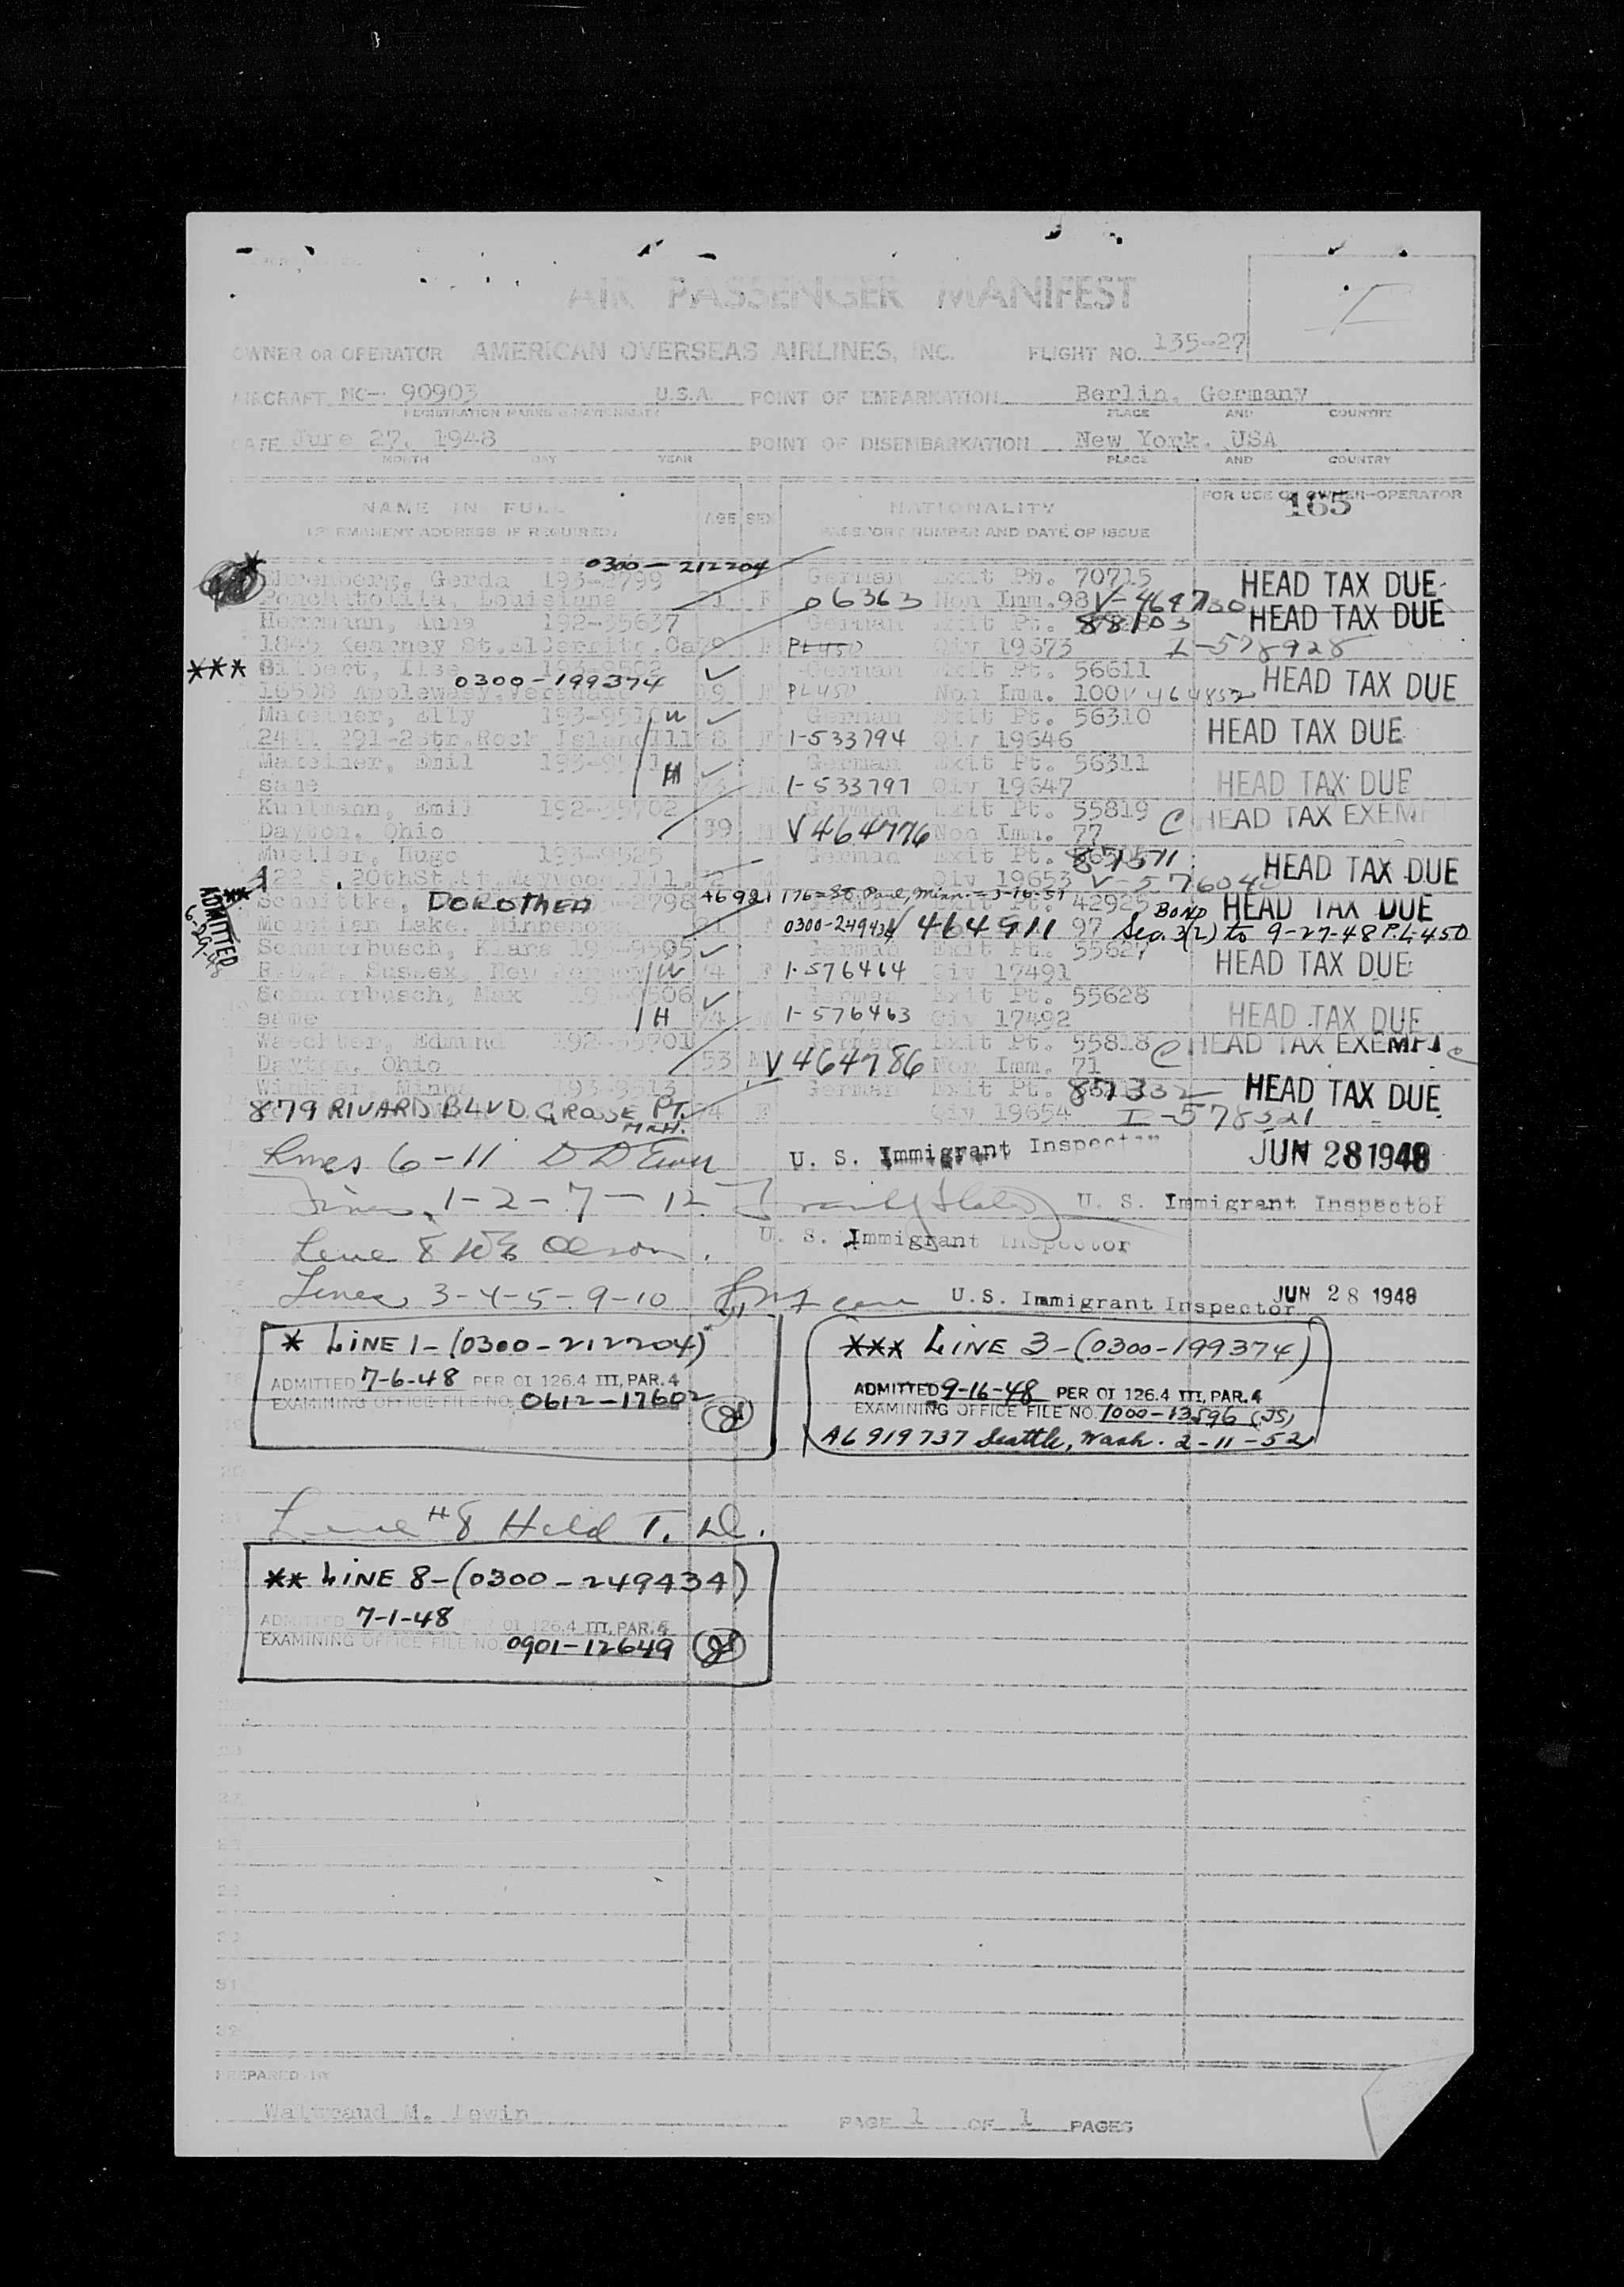 AIR PASSENGER MANIFEST
OWNER OR OPERATOR AMERICAN OVERSEAS AIRLINES, INC. FLIGHT NO. 135-27
AIRCRAFT NC- 90903 U.S.A. POINT OF EMBARKATION Berlin, Germany
REGISTRATION MARKS & NATIONALITY PLACE AND COUNTRY
DATE June 27, 1948 POINT OF DISEMBARKATION New York, USA
MONTH DAY YEAR PLACE AND COUNTRY
NAME IN FULL AGE SEX NATIONALITY FOR USE OF OWNER-OPERATOR
(PERMANENT ADDRESS IF REQUIRED) PASSPORT NUMBER AND DATE OF ISSUE 165
0300-212204
* Gerda 193-2799 German Exit Pt. 70715 HEAD TAX DUE
Ponchatoula, Louisiana F 06363 Non Imm. 98 V-469730
Herrmann, Anna 192-35637 German Exit Pt. 88103 HEAD TAX DUE
1845 Kearney St. ElCerrito, Ca F PL450 Qiv 19673 I-578928
*** Gilbert, Ilse 193-9502 German Exit Pt. 56611 HEAD TAX DUE
0300-199374
16508 Appleway, 19 F PL450 Non Imm. 100 V464852
Elly W German Exit Pt. 56310 HEAD TAX DUE
Rock Island Ill F 1-533794 Qiv 19646
Emil H German Exit Pt. 56311 HEAD TAX DUE
same M 1-533797 Qiv 19647
Kuhlmann, Emil 192-35702 German Exit Pt. 55819 C HEAD TAX EXEMPT
Dayton, Ohio 39 M V464776 Non Imm. 77
Mueller, Hugo 193-9525 German Exit Pt. HEAD TAX DUE
122 S. 20thSt. Maywood Ill. Qiv 19653
** Schmittke, DOROTHEA 2798 A6921176=St. Paul, Minn.=3-16-51 42925 BOND HEAD TAX DUE
Lake, Minnesota 0300-249434 V 464911 97 Sec. 3(2) to 9-27-48 P.L-450
ADMITTED 6-29-48
Schnurbusch, Klara 193-9505 German Exit Pt. 55627 HEAD TAX DUE
R.D.2, Sussex, New Jersey W F 1-576464 Qiv 17491
Schnurbusch, Max 193-9506 German Exit Pt. 55628 HEAD TAX DUE
same H M 1-576463 Qiv 17492
Waechter, Edmund 192-35701 German Exit Pt. 55818 C HEAD TAX EXEMPT C
Dayton, Ohio 53 M V464786 Non Imm. 71
Winkler, Minna 193-9513 German Exit Pt. HEAD TAX DUE
879 RIVARD BLVD. GROSSE PT. F Qiv 19654 I-578521
MICH.
Lines 6-11 U. S. Immigrant Inspector JUN 28 1948
Lines 1-2-7-12 U. S. Immigrant Inspector
Line 8 Olson U. S. Immigrant Inspector
Lines 3-4-5-9-10 U.S. Immigrant Inspector JUN 28 1948
* LINE 1-(0300-212204)
ADMITTED 7-6-48 PER OI 126.4 III, PAR. 4
EXAMINING OFFICE FILE NO. 0612-17602
*** LINE 3-(0300-199374)
ADMITTED 9-16-48 PER OI 126.4 III, PAR. 4
EXAMINING OFFICE FILE NO. 1000-13596 (JS)
A6919737 Seattle, Wash. 2-11-52
Line #8 Held T. D.
** LINE 8-(0300-249434)
ADMITTED 7-1-48 PER OI 126.4 III, PAR. 4
EXAMINING OFFICE FILE NO. 0901-12649
PREPARED BY
Waltraud M. Lewin PAGE 1 OF 1 PAGES